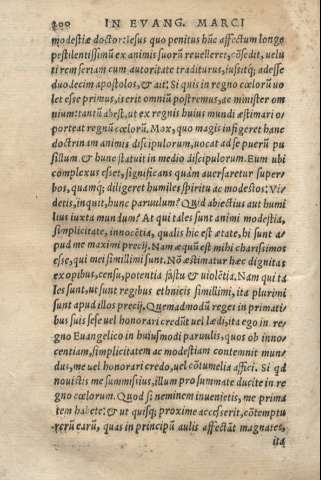 200 IN EVANG. MARCI
modestiæ doctor: Iesus quo penitus hũc affectum longe
pestilentissimũ ex animis suorũ reuelleret, cõsedit, uelu
ti rem seriam cum autoritate traditurus, iussitq; adesse
duodecim apostolos, & ait: Si quis in regno cœlorũ uo
let esse primus, is erit omniũ postremus, ac minister om
nium: tantũ abest, ut ex regnis huius mundi æstimari o=
porteat regnũ cœlorũ. Mox, quo magis infigeret hanc
doctrinam animis discipulorum, uocat ad se puerũ pu
sillum & hunc statuit in medio discipulorum. Eum ubi
complexus esset, significans quàm auersaretur super=
bos, quamq; diligeret humiles spiritu ac modestos: Vi=
detis, inquit, hunc paruulum? Quid abiectius aut humi
lius iuxta mundum? At qui tales sunt animi modestia,
simplicitate, innocẽtia, qualis hic est ætate, hi sunt a=
pud me maximi precij. Nam æquũ est mihi charissimos
esse, qui mei simillimi sunt. Nõ æstimatur hæc dignitas
ex opibus, censu, potentia fastu & uiolẽtia. Nam qui ta
les sunt, ut sunt regibus ethnicis simillimi, ita plurimi
sunt apud illos precij. Quemadmodũ reges in primati=
bus suis sese uel honorari credũt uel lædi, ita ego in re=
gno Euangelico in huiusmodi paruulis, quos ob inno=
centiam, simplicitatem ac modestiam contemnit mun=
dus, me uel honorari credo, uel cõtumelia affici. Si qd
nouistis me summisius, illum pro summate ducite in re
gno cœlorum. Quod si neminem inuenietis, me prima
tem habete: & ut quisq; proxime accesserit, cõtemptu
rerũ earũ, quas in principũ aulis affectãt magnates,
ita